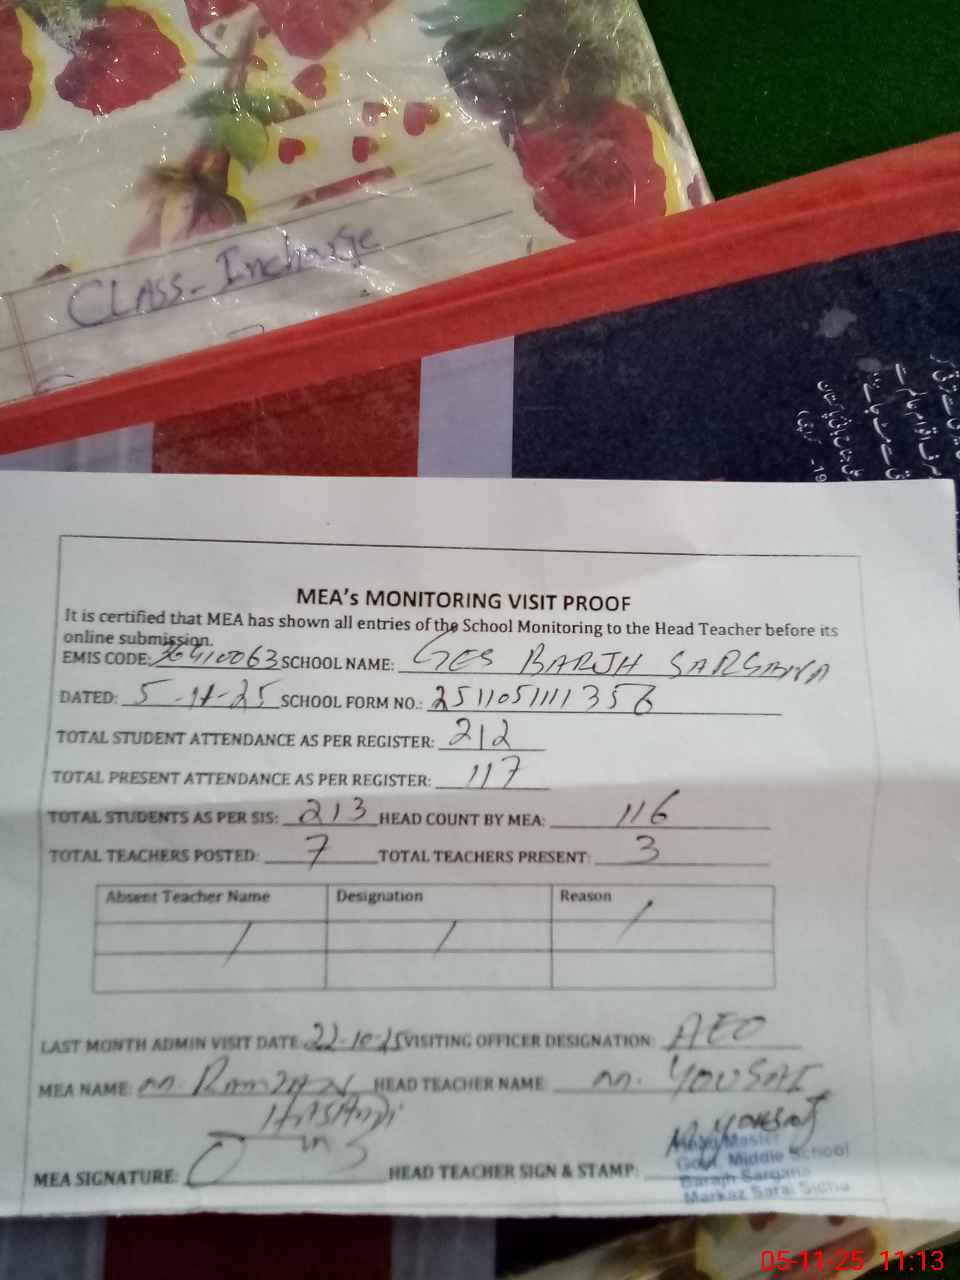 CLASS- Incharge
MEA's MONITORING VISIT PROOF
It is certified that MEA has shown all entries of the School Monitoring to the Head Teacher before its
online submission.
EMIS CODE: SCHOOL NAME: GES BARJH SARGANA
DATED: 5-11-25 SCHOOL FORM NO.: 2511051111356
TOTAL STUDENT ATTENDANCE AS PER REGISTER: 212
TOTAL PRESENT ATTENDANCE AS PER REGISTER: 117
TOTAL STUDENTS AS PER SIS: 213 HEAD COUNT BY MEA: 116
TOTAL TEACHERS POSTED: 7 TOTAL TEACHERS PRESENT: 3
Absent Teacher Name Designation Reason
/ / /
LAST MONTH ADMIN VISIT DATE 22-10-25 VISITING OFFICER DESIGNATION: AEO
MEA NAME: M. RAMZAN HEAD TEACHER NAME: M. YOUSAF
MEA SIGNATURE: HEAD TEACHER SIGN & STAMP:
Head Master
Govt. Middle School
Barajh Sargana
Markaz Sarai Sidhu
05-11-25 11:13